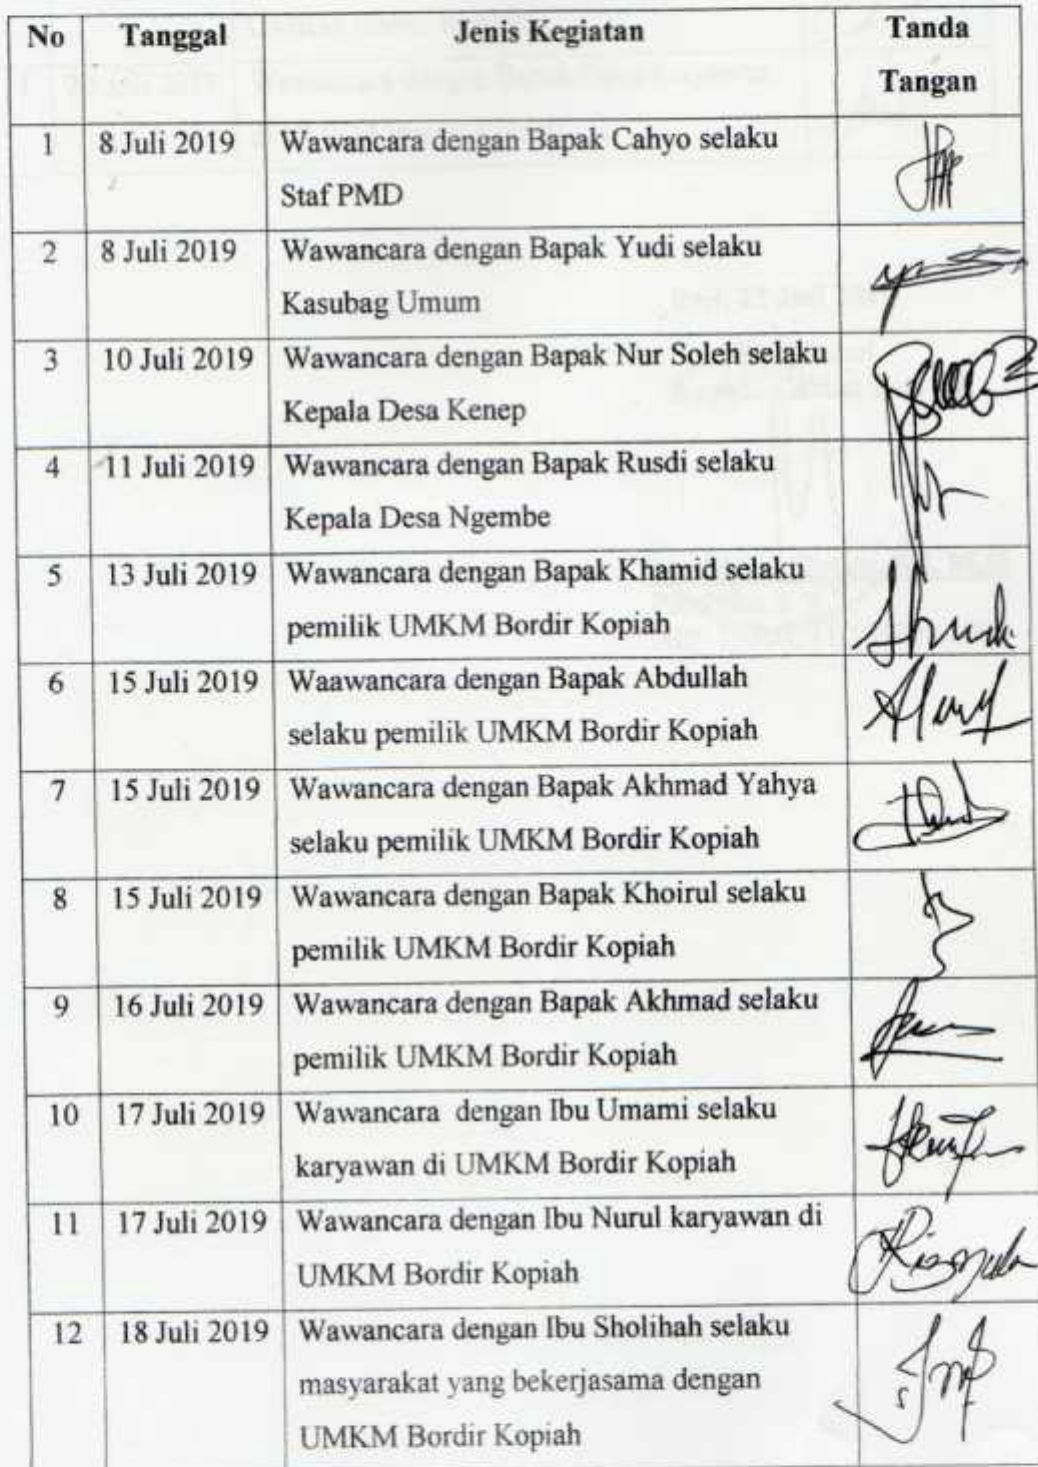 No Tanggal Jenis Kegiatan Tanda
Tangan
1 8 Juli 2019 Wawancara dengan Bapak Cahyo selaku
Staf PMD
2 8 Juli 2019 Wawancara dengan Bapak Yudi selaku
Kasubag Umum
3 10 Juli 2019 Wawancara dengan Bapak Nur Soleh selaku
Kepala Desa Kenep
4 11 Juli 2019 Wawancara dengan Bapak Rusdi selaku
Kepala Desa Ngembe
5 13 Juli 2019 Wawancara dengan Bapak Khamid selaku
pemilik UMKM Bordir Kopiah
6 15 Juli 2019 Waawancara dengan Bapak Abdullah
selaku pemilik UMKM Bordir Kopiah
7 15 Juli 2019 Wawancara dengan Bapak Akhmad Yahya
selaku pemilik UMKM Bordir Kopiah
8 15 Juli 2019 Wawancara dengan Bapak Khoirul selaku
pemilik UMKM Bordir Kopiah
9 16 Juli 2019 Wawancara dengan Bapak Akhmad selaku
pemilik UMKM Bordir Kopiah
10 17 Juli 2019 Wawancara dengan Ibu Umami selaku
karyawan di UMKM Bordir Kopiah
11 17 Juli 2019 Wawancara dengan Ibu Nurul karyawan di
UMKM Bordir Kopiah
12 18 Juli 2019 Wawancara dengan Ibu Sholihah selaku
masyarakat yang bekerjasama dengan
UMKM Bordir Kopiah